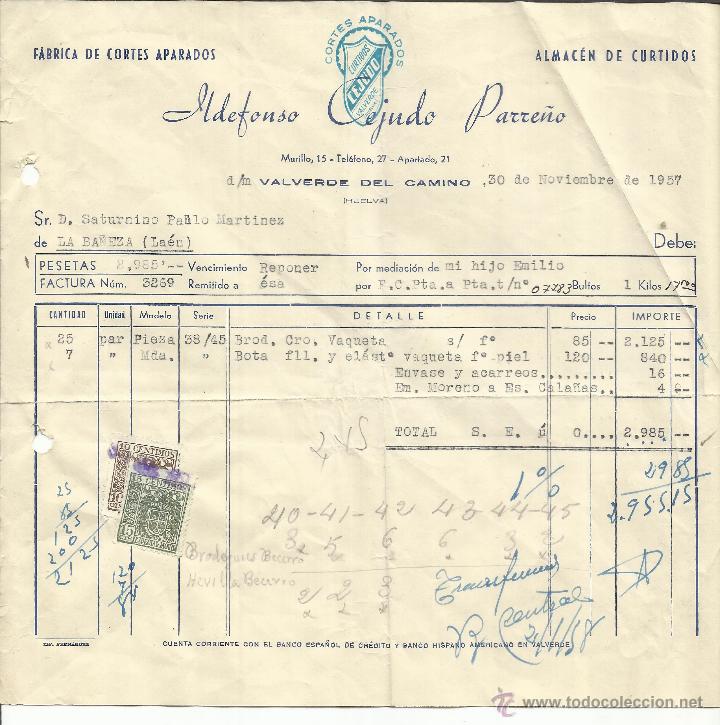 FÁBRICA DE CORTES APARADOS
CORTES APARADOS
CURTIDOS
TEJUDO
VALVERDE
ALMACÉN DE CURTIDOS
Ildefonso Cejudo Parreño
Murillo, 15 - Teléfono, 27 - Apartado, 21
d/m VALVERDE DEL CAMINO, 30 de Noviembre de 1957
(HUELVA)
Sr. D. Saturnino Pablo Martinez
de LA BAÑEZA (Laén)
Debe:
PESETAS 2,985'-- Vencimiento Reponer Por mediación de mi hijo Emilio
FACTURA Núm. 3269 Remitido a ésa por F.C.Pta.a Pta.t/nº 07783 Bultos 1 Kilos 17'00
CANTIDAD Unidad Modelo Serie DETALLE Precio IMPORTE
25 par Pieza 38/45 Brod. Cro. Vaqueta s/ fº 85 -- 2.125 --
7 " Mda. " Bota fll. y elástº vaqueta fº piel 120 -- 840 --
Envase y acarreos......... 16 --
Em. Moreno a Es. Calañas.. 4 --
TOTAL S. E. ú 0.... 2.985 --
245
1% 29 85
2.955.15
25
85
125
200
2125
120
7
840
10 CENTIMOS
15
40-41-42 43 44-45
3 5 6 6 3 2
Brodequies Becerro
Hevilla Becerro
2 2 3
Transferencia
Central
2/1/58
IMP. FERNÁNDEZ
CUENTA CORRIENTE CON EL BANCO ESPAÑOL DE CRÉDITO Y BANCO HISPANO AMERICANO EN VALVERDE
www.todocoleccion.net